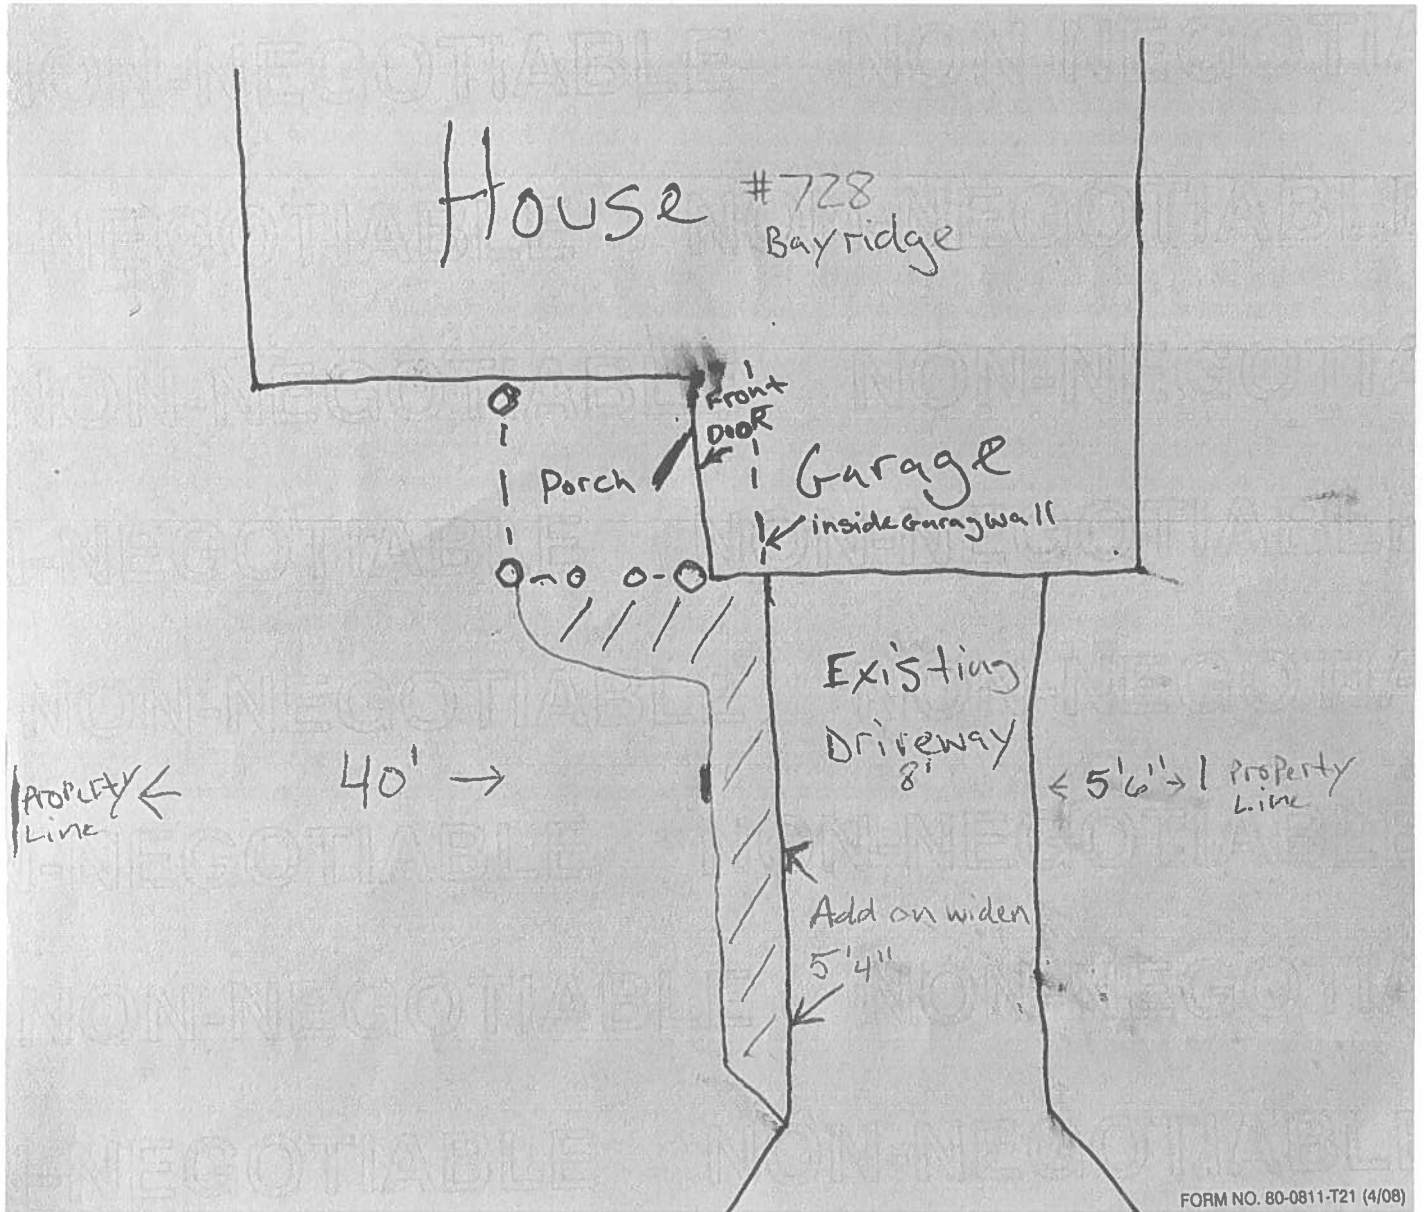 NON-NEGOTIABLE NON-NEGOTIA
House #728
Bayridge
Front
DOOR
Porch
Garage
insideGaragwall
Existing
Driveway
8'
40'
Property
Line
5'6"
Property
Line
Add on widen
5'4"
FORM NO. 80-0811-T21 (4/08)